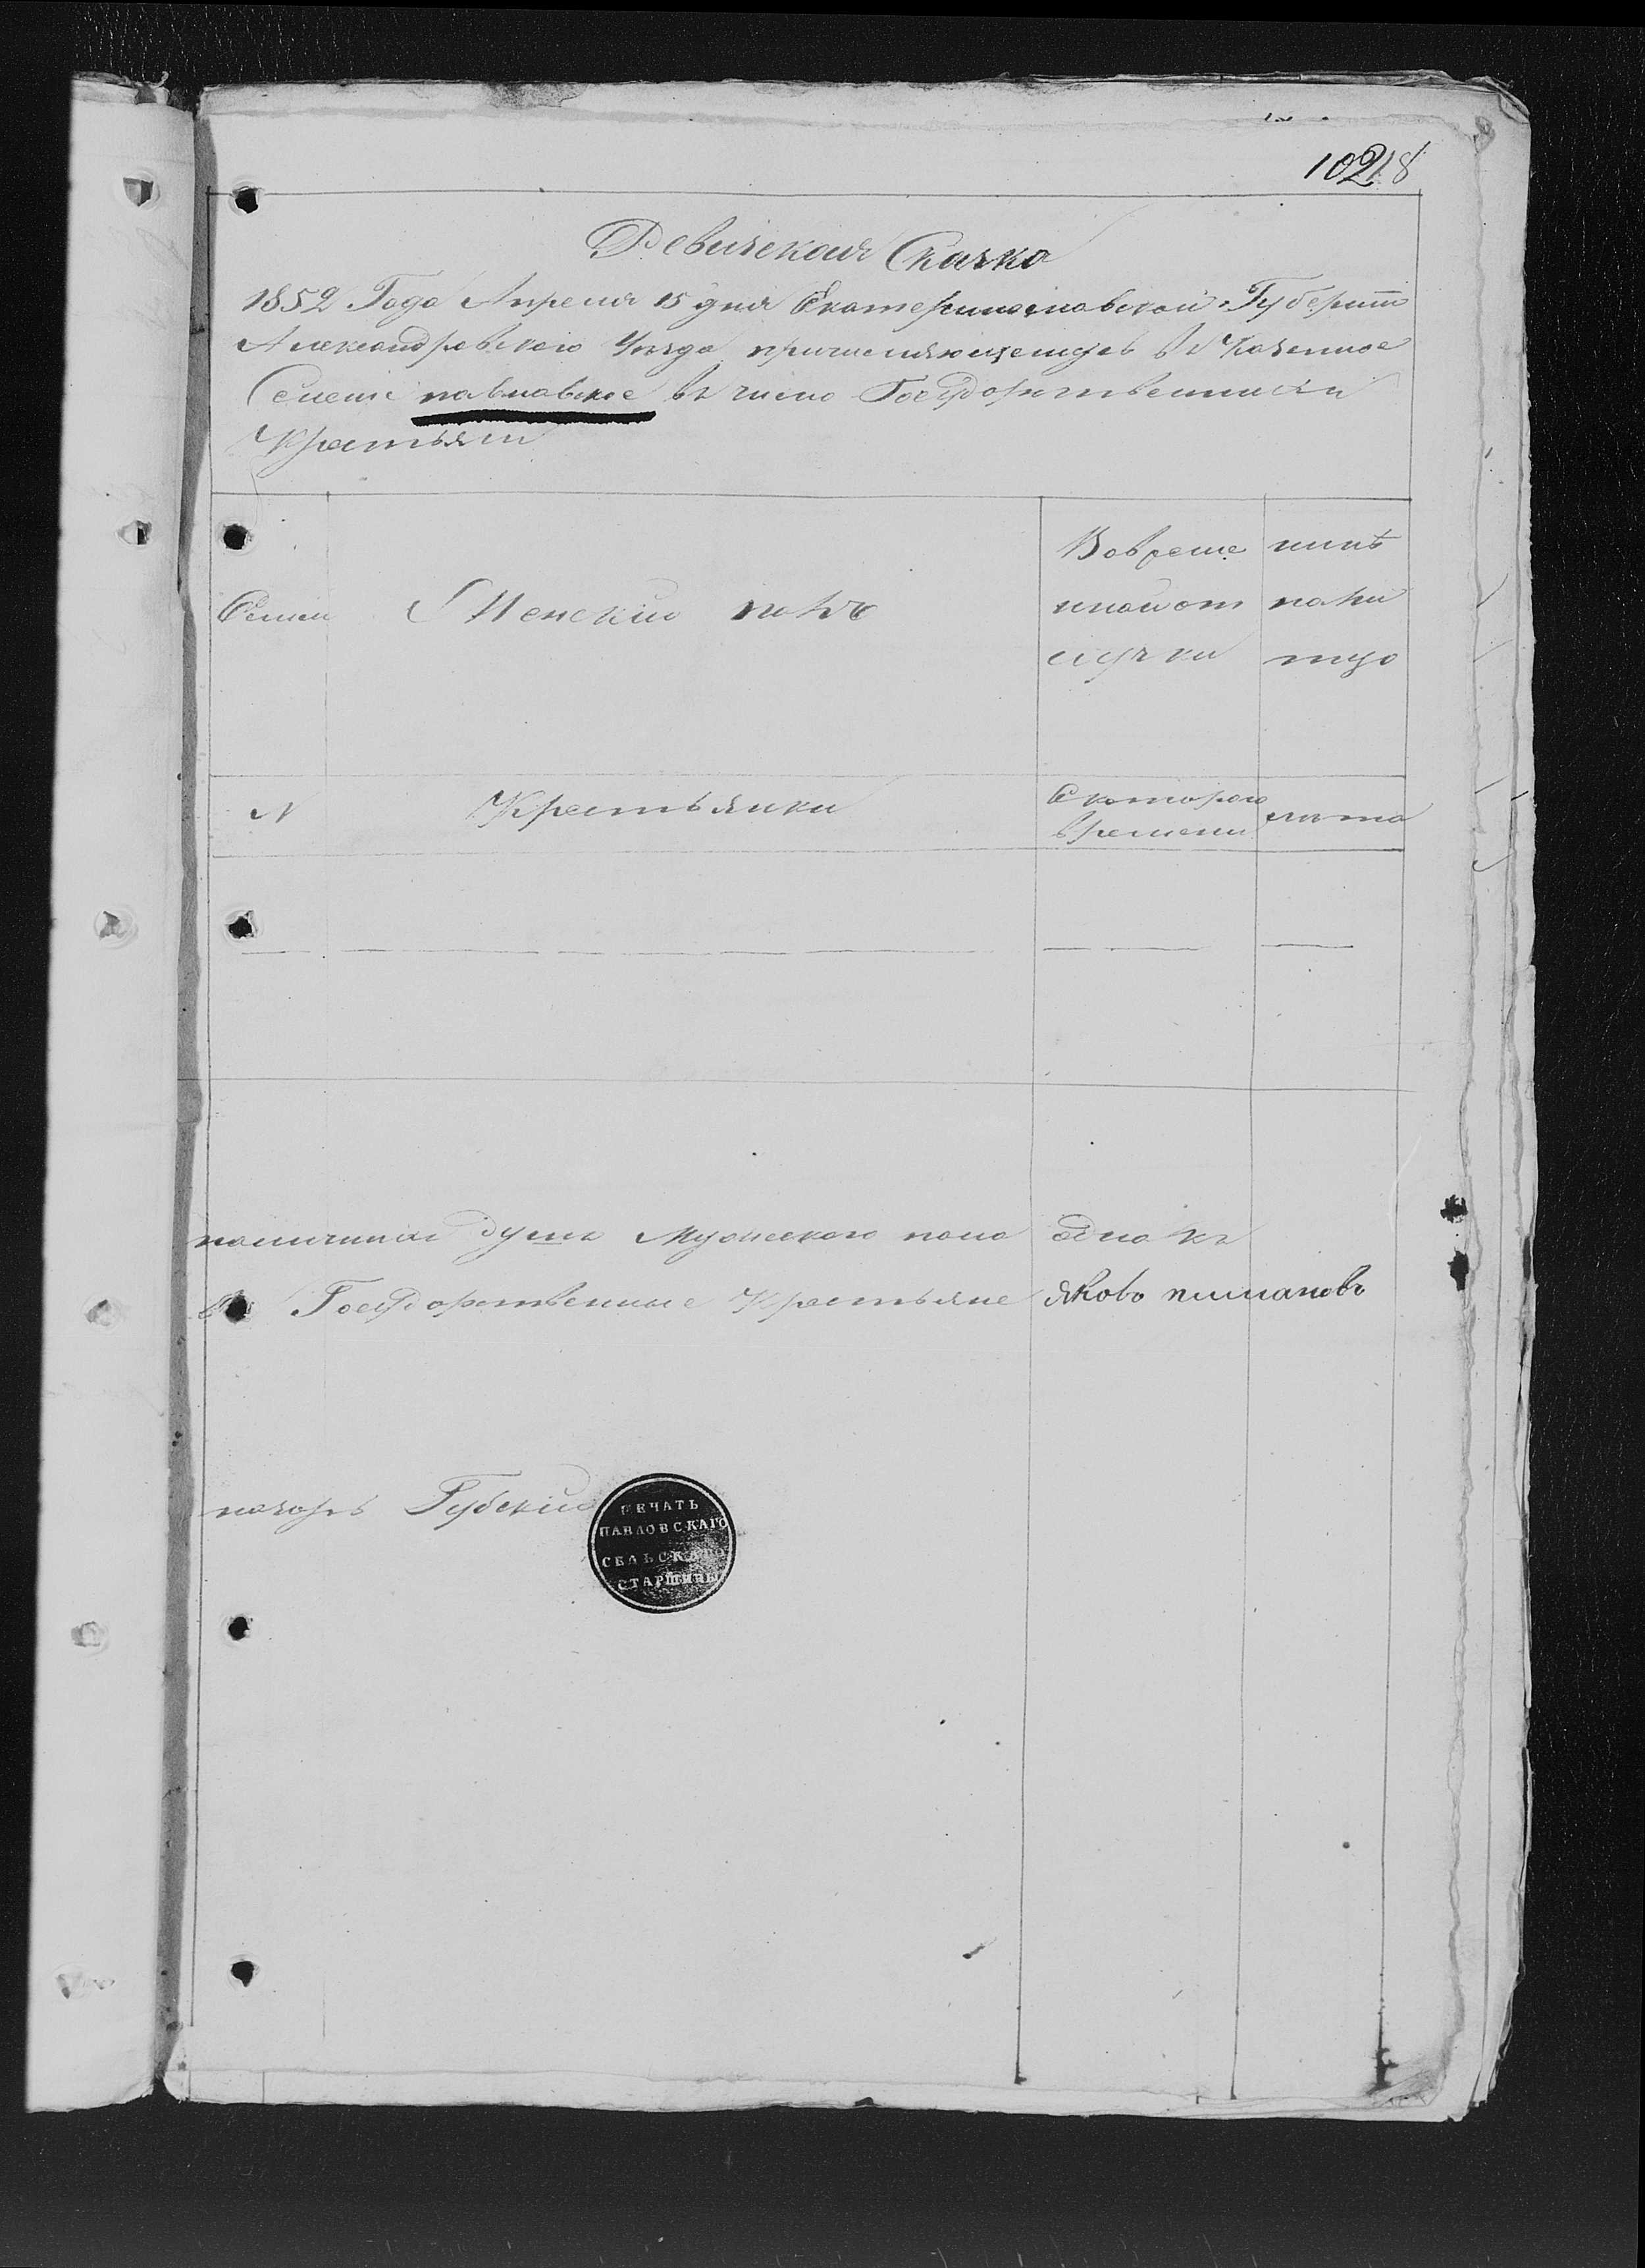 10218
Ревизская Сказка
1852 Года Апреля 15 дня Екатеринославской Губернии
Александровского Уезда причисляющемусь въ Казенное
Селение павлавское въ число Государственныхъ
Крестьянъ
Семьи
Женский полъ
Вовреме
нной от
лучки
нинѣ
нали
тцо
N
Крестьянки
С которого
времени
лѣта
наличная душа Мужеского пола одна къ
Государственные Крестьяне Яковъ
Губский
ПЕЧАТЬ
ПАВЛОВСКАГО
СЕЛЬСКАГО
СТАРШИНЫ